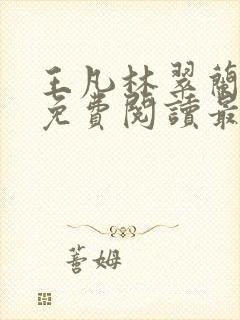 王凡林翠蘭
免費閱讀最
蓍姆